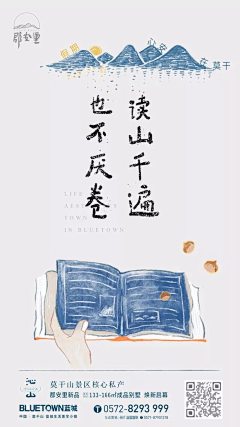 郡安里
假期
心安
在
莫干
读山千遍
也不厌卷
LIFE
AESTHETICS
TOWN
IN BLUETOWN
莫干山景区核心私产
郡安里新品 133-166㎡成品别墅 焕新启幕
BLUETOWN蓝城
0572-8293 999